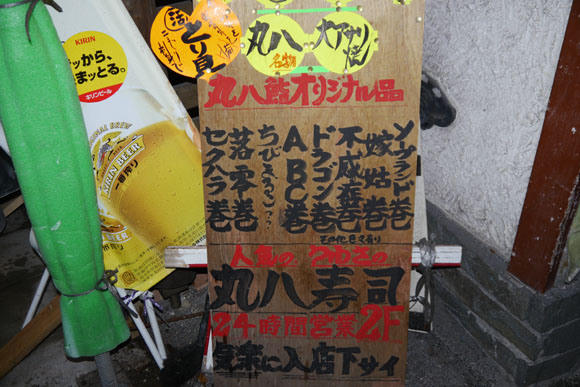 活
とり貝
丸八
名物
大アサリ焼
丸八鮨オリジナル品
ソープランド巻
嫁姑巻
ドラゴン巻
ABC巻
ちびまる子
落雫巻
セクハラ巻
その他色々有り
人気の
丸八寿司
24時間営業2F
気楽に入店下サイ
KIRIN
ッから、
まッとる。
キリンビール
KIRIN BEER
一番搾り